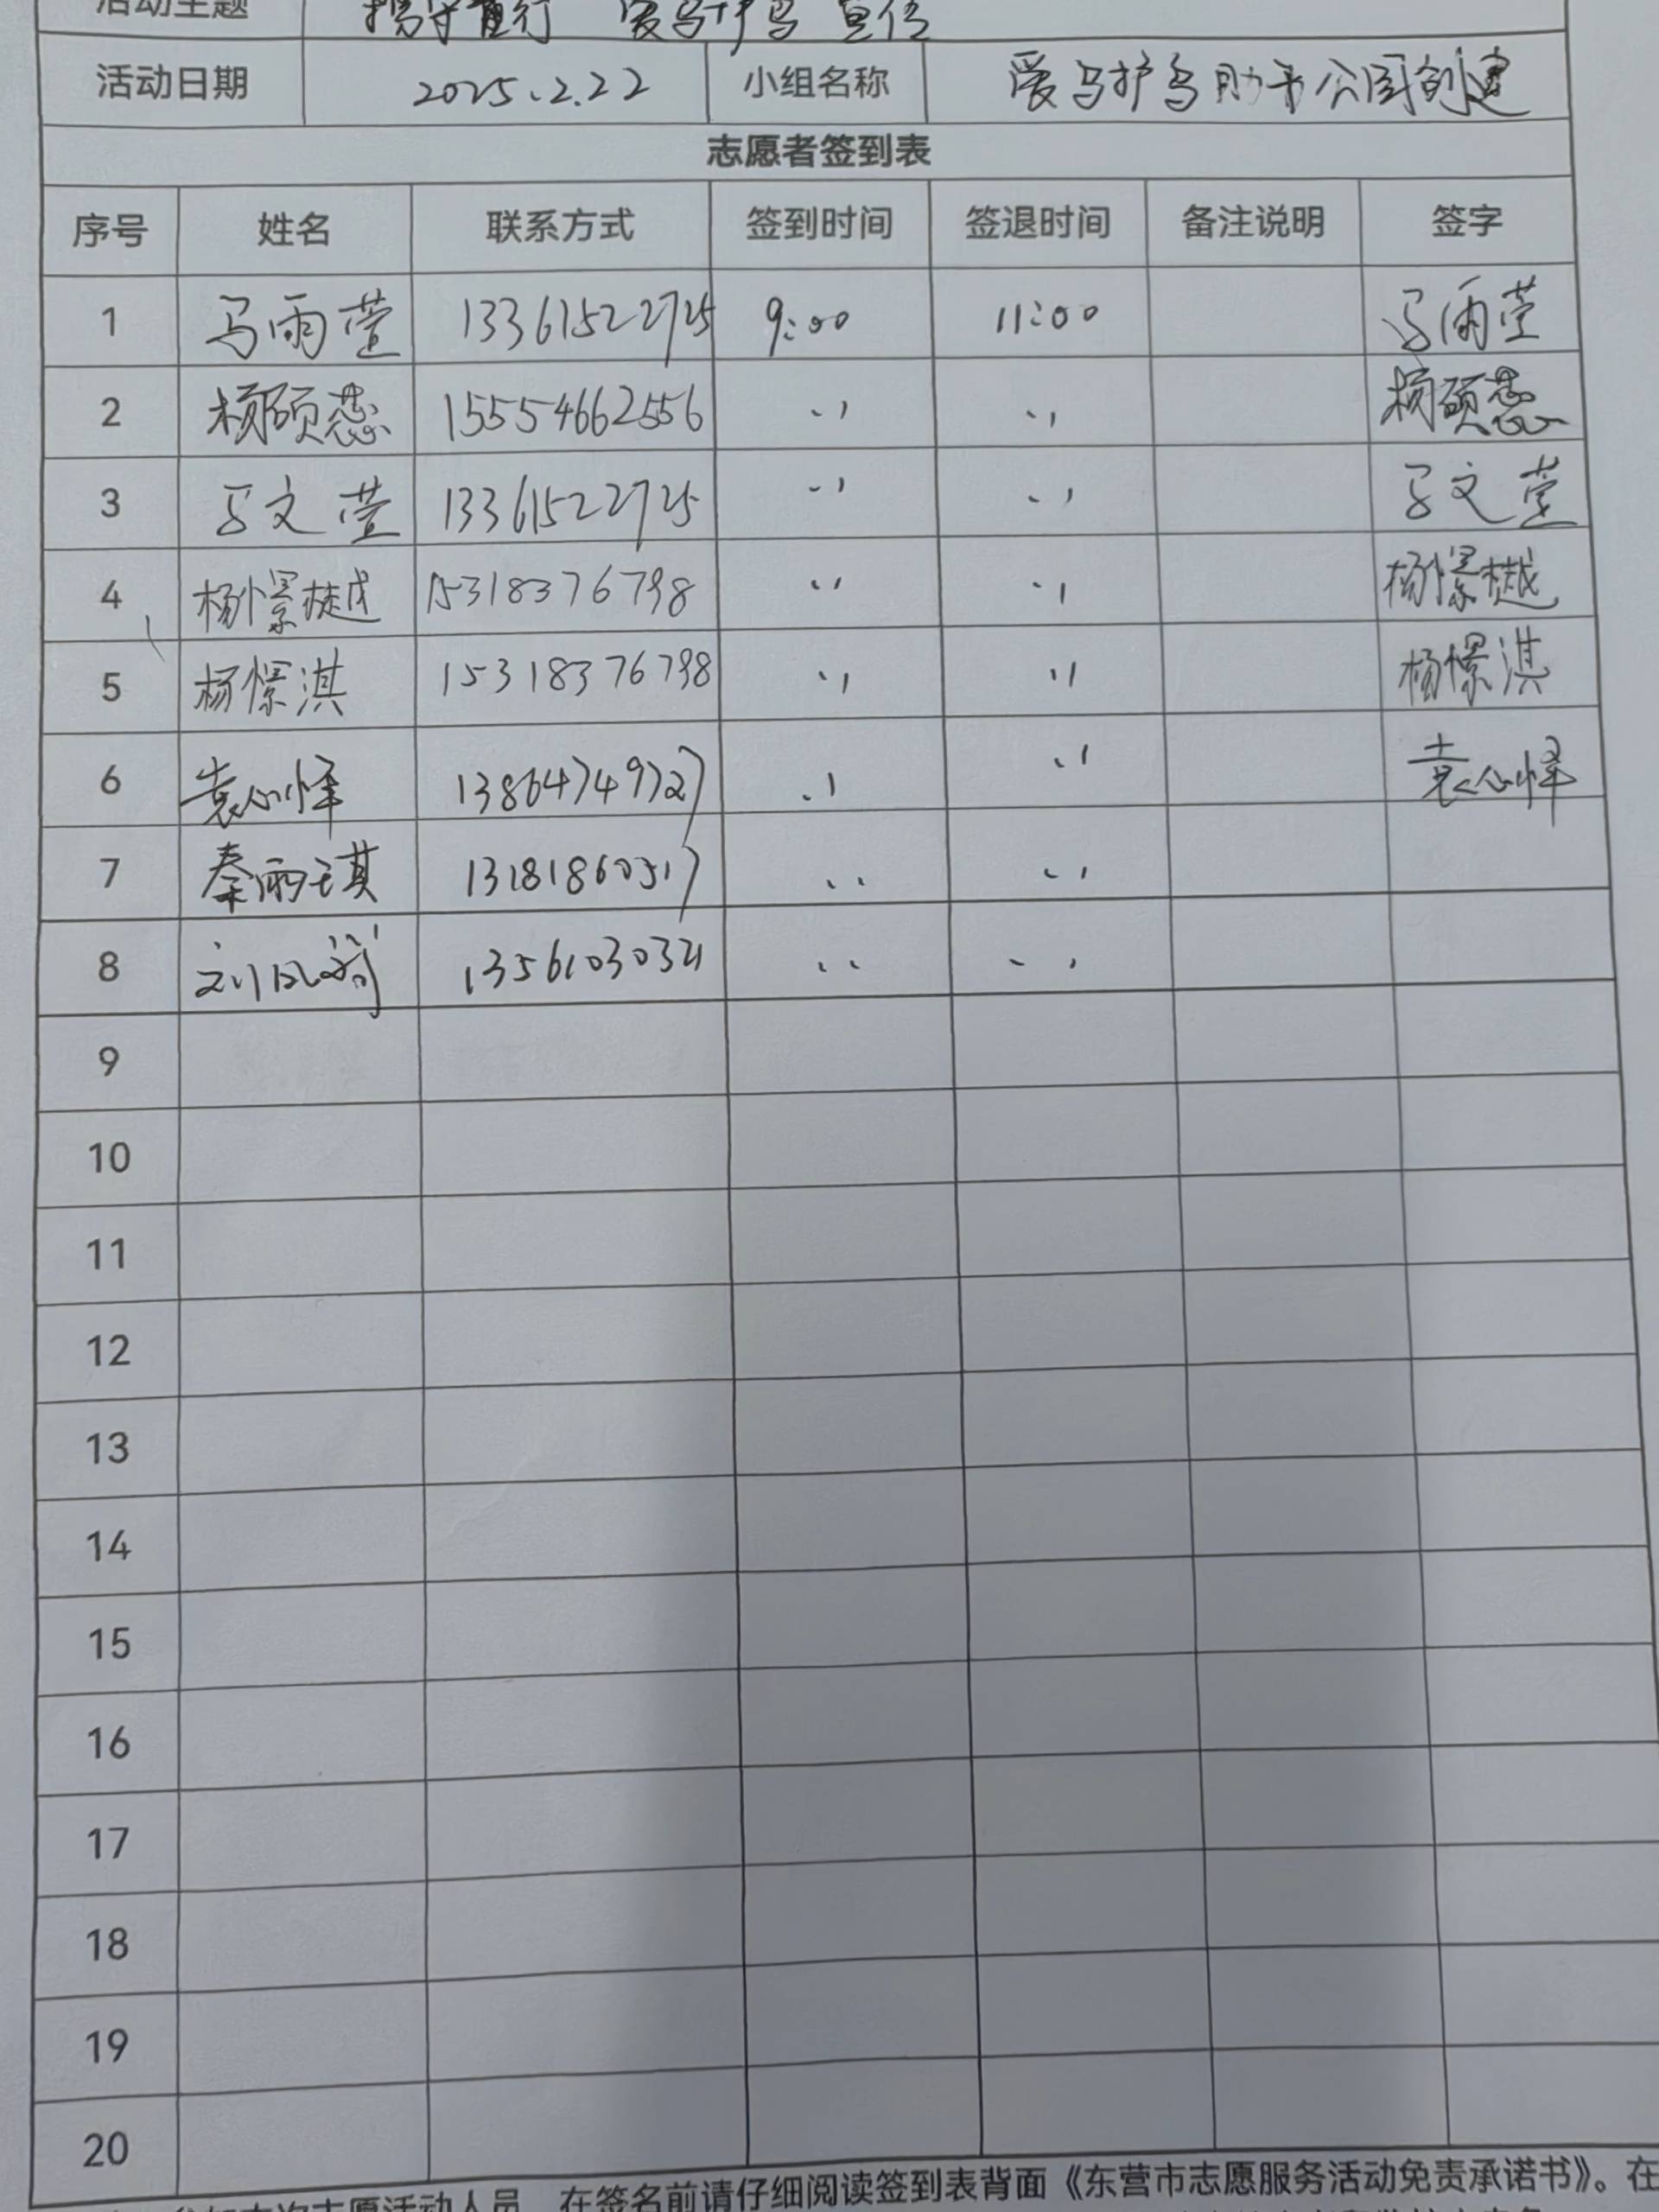 活动主题 爱鸟护鸟 宣传
活动日期 2025.2.22 小组名称 爱鸟护鸟助力公园创建
志愿者签到表
序号 姓名 联系方式 签到时间 签退时间 备注说明 签字
1 马雨萱 13361522725 9:00 11:00 马雨萱
2 杨硕蕊 15554662556 〃 〃 杨硕蕊
3 马文萱 13361522725 〃 〃 马文萱
4 杨憬樾 15318376798 〃 〃 杨憬樾
5 杨憬淇 15318376798 〃 〃 杨憬淇
6 袁心怿 13864749727 〃 〃 袁心怿
7 秦雨琪 13181860517 〃 〃
8 13561030321 〃 〃
9
10
11
12
13
14
15
16
17
18
19
20
参加本次志愿活动人员，在签名前请仔细阅读签到表背面《东营市志愿服务活动免责承诺书》。在